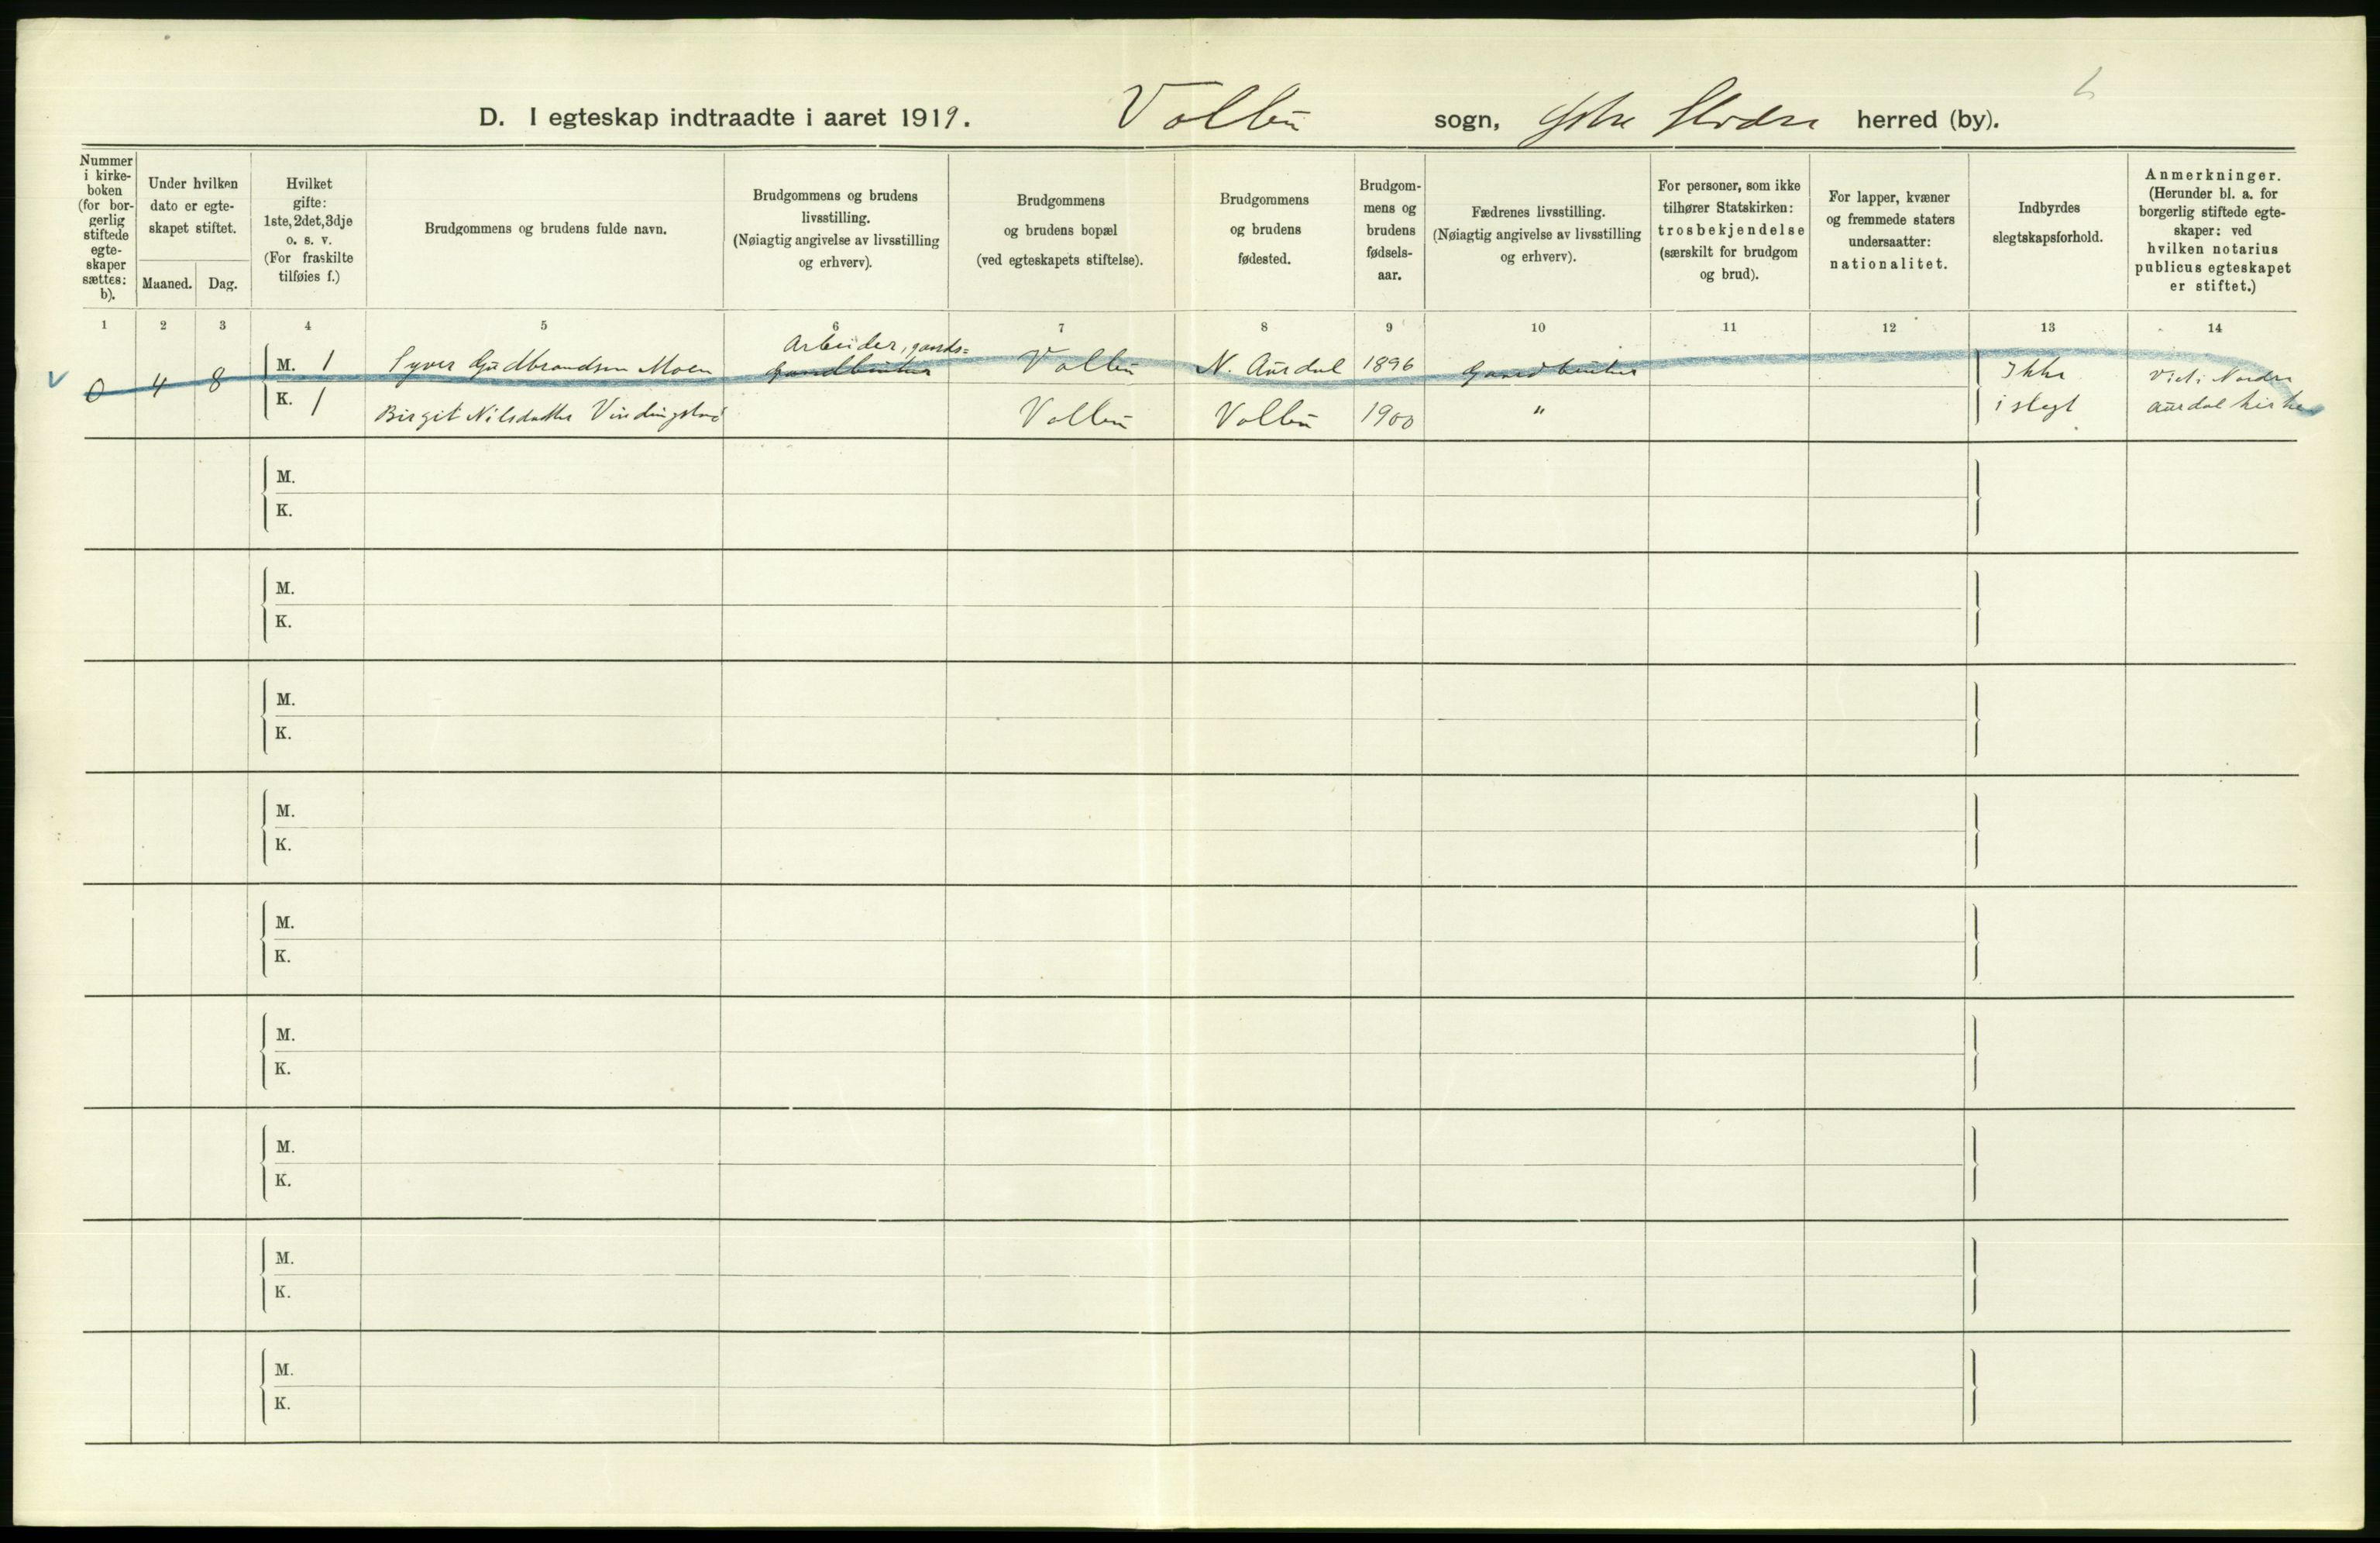 D. I egteskap indtraadte i aaret 1919. Volbu sogn, Østre Slidre herred (by).
Nummer
i kirke-
boken
(for bor-
gerlig
stiftede
egte-
skaper
sættes:
b).
Under hvilken
dato er egte-
skapet stiftet.
Maaned. Dag.
Hvilket
gifte:
1ste, 2det, 3dje
o. s. v.
(For fraskilte
tilføies f.)
Brudgommens og brudens fulde navn.
Brudgommens og brudens
livsstilling.
(Nøiagtig angivelse av livsstilling
og erhverv).
Brudgommens
og brudens bopæl
(ved egteskapets stiftelse).
Brudgommens
og brudens
fødested.
Brudgom-
mens og
brudens
fødsels-
aar.
Fædrenes livsstilling.
(Nøiagtig angivelse av livsstilling
og erhverv).
For personer, som ikke
tilhører Statskirken:
trosbekjendelse
(særskilt for brudgom
og brud).
For lapper, kvæner
og fremmede staters
undersaatter:
nationalitet.
Indbyrdes
slegtskapsforhold.
Anmerkninger.
(Herunder bl. a. for
borgerlig stiftede egte-
skaper: ved
hvilken notarius
publicus egteskapet
er stiftet.)
1 2 3 4 5 6 7 8 9 10 11 12 13 14
Arbeider, gaards=
0 4 8 M. 1 Syver Gudbrandsen Moen Gaardbruker Volbu N. Aurdal 1896 Gaardbruker Ikke Viet i Nordre
K. 1 Birgit Nilsdatter Volbu Volbu 1900 " i slegt Aurdal kirke
M.
K.
M.
K.
M.
K.
M.
K.
M.
K.
M.
K.
M.
K.
M.
K.
M.
K.